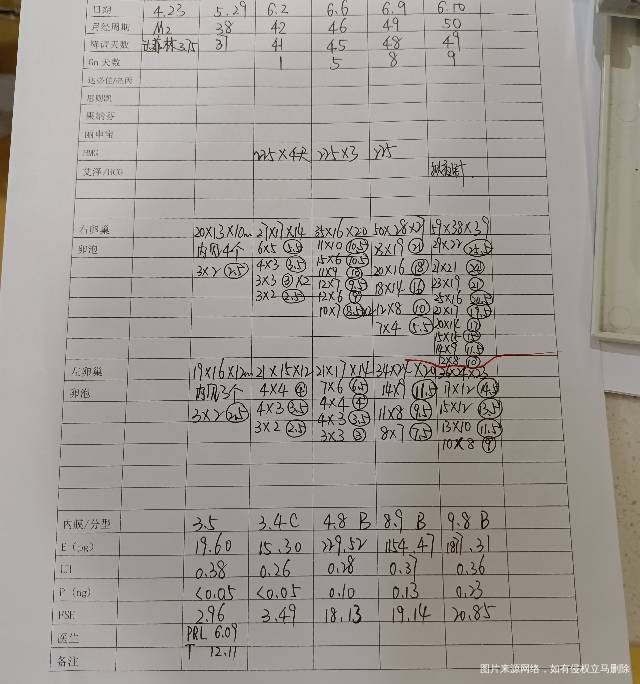 日期 4.23 5.29 6.2 6.6 6.9 6.10
月经周期 M2 38 42 46 49 50
降调天数 3.75 37 41 45 48 49
Gn 天数 1 5 8 9
HMG 225×4天 225×3 225
艾泽/HCG
右卵巢 20×13×10mm 27×17×14 35×16×20 50×28×27 59×38×39
卵泡 内见4个 6×5 5.5 11×10 10.5 ×19 21 29×22 25.5
3×2 2.5 4×3 3.5 15×6 10.5 20×16 18 27×21 24
3×3 3 ×2 11×9 10 18×14 16 23×19 21
3×2 2.5 12×7 9.5 12×8 10 25×16 20.5
12×6 9 7×4 5.5 20×17
10×7 8.5 20×14 17
15×15 15
14×9 11.5
12×8 10
左卵巢 19×16×12mm 21×15×12 21×17×14
卵泡 内见3个 4×4 4 7×6 6.5 14×9 11.5 17×12 14.5
3×2 2.5 4×3 3.5 4×4 4 11×8 9.5 15×12 13.5
3×2 2.5 4×3 3.5 8×7 7.5 13×10 11.5
3×3 3 10×8 9
内膜/分型 3.5 3.4 C 4.8 B 8.9 B 9.8 B
E (DR) 19.60 15.30 229.52 1154.47
LH 0.38 0.26 0.28 0.37 0.36
P (ng) <0.05 <0.05 0.10 0.13 0.23
FSH 2.96 3.49 18.13 19.14 20.85
医生 PRL 6.09
备注 T 12.11
图片来源网络，如有侵权立马删除